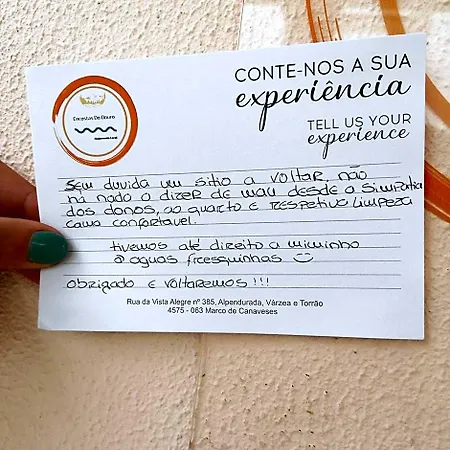 CONTE-NOS A SUA
experiência
TELL US YOUR
experience
Encostas Do Douro
Sem duvida um sitio a voltar, não
há nada a dizer de mau desde a simpatia
dos donos, ao quarto e respetiva limpeza
cama confortavel.
tivemos até direito a miminho
@ aguas fresquinhas ☺
obrigado e voltaremos !!!
Rua da Vista Alegre nº 385, Alpendurada, Várzea e Torrão
4575 - 063 Marco de Canaveses